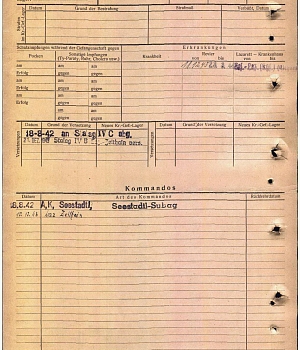 Datum
Grund der Bestrafung
Strafmaß
Verbüßt, Datum
Schutzimpfungen während der Gefangenschaft gegen
Erkrankungen
Pocken
Sonstige Impfungen
(Ty-Paraty, Ruhr, Cholera usw.)
Krankheit
Revier
von bis
Lazarett - Krankenhaus
von bis
am
am
am
Erfolg
gegen
gegen
am
am
am
Erfolg
gegen
gegen
am
am
am
Erfolg
gegen
gegen
am
am
gegen
gegen
Datum
Grund der Versetzung
Neues Kr.-Gef.-Lager
Datum
Grund der Versetzung
Neues Kr.-Gef.-Lager
18-8-42 an Stalag IV C abg.
Stalag IV B
Kommandos
Datum
Art des Kommandos
Rückkehrdatum
18.8.42 A,K, Seestadtl, Seestadtl-Subag
Zeithain